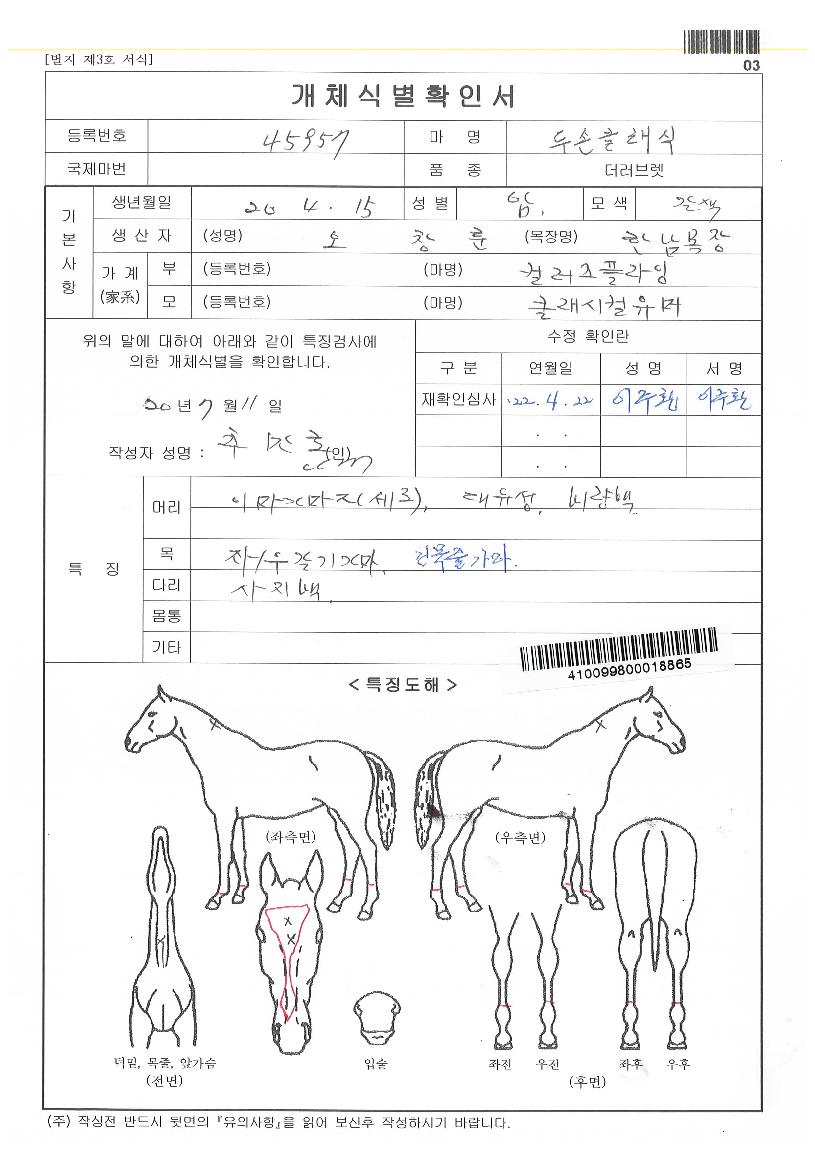 [별지 제3호 서식]
03
개체식별확인서
등록번호 45957 마 명 두손클래식
국제마번 품 종 더러브렛
기본사항
생년월일 20 4. 15 성 별 암. 모 색 갈색
생 산 자 (성명) 오 창 훈 (목장명) 한남목장
가 계 (家系) 부 (등록번호) (마명) 컬러즈플라잉
모 (등록번호) (마명) 클래시컬유머
위의 말에 대하여 아래와 같이 특징검사에
의한 개체식별을 확인합니다.
20 년 7 월 11 일
작성자 성명 : (인)
수정 확인란
구 분 연월일 성 명 서 명
재확인심사 '22. 4. 22 이주환 이주환
. .
. .
특 징
머리 이마가마지(세로), 대유성, 비량백
목 좌/우 갈기가마, 전목줄가마.
다리 사지백
몸통
기타
410099800018865
< 특징도해 >
(좌측면) (우측면)
턱밑, 목줄, 앞가슴 입술 좌전 우전 좌후 우후
(전면) (후면)
(주) 작성전 반드시 뒷면의 『유의사항』을 읽어 보신후 작성하시기 바랍니다.